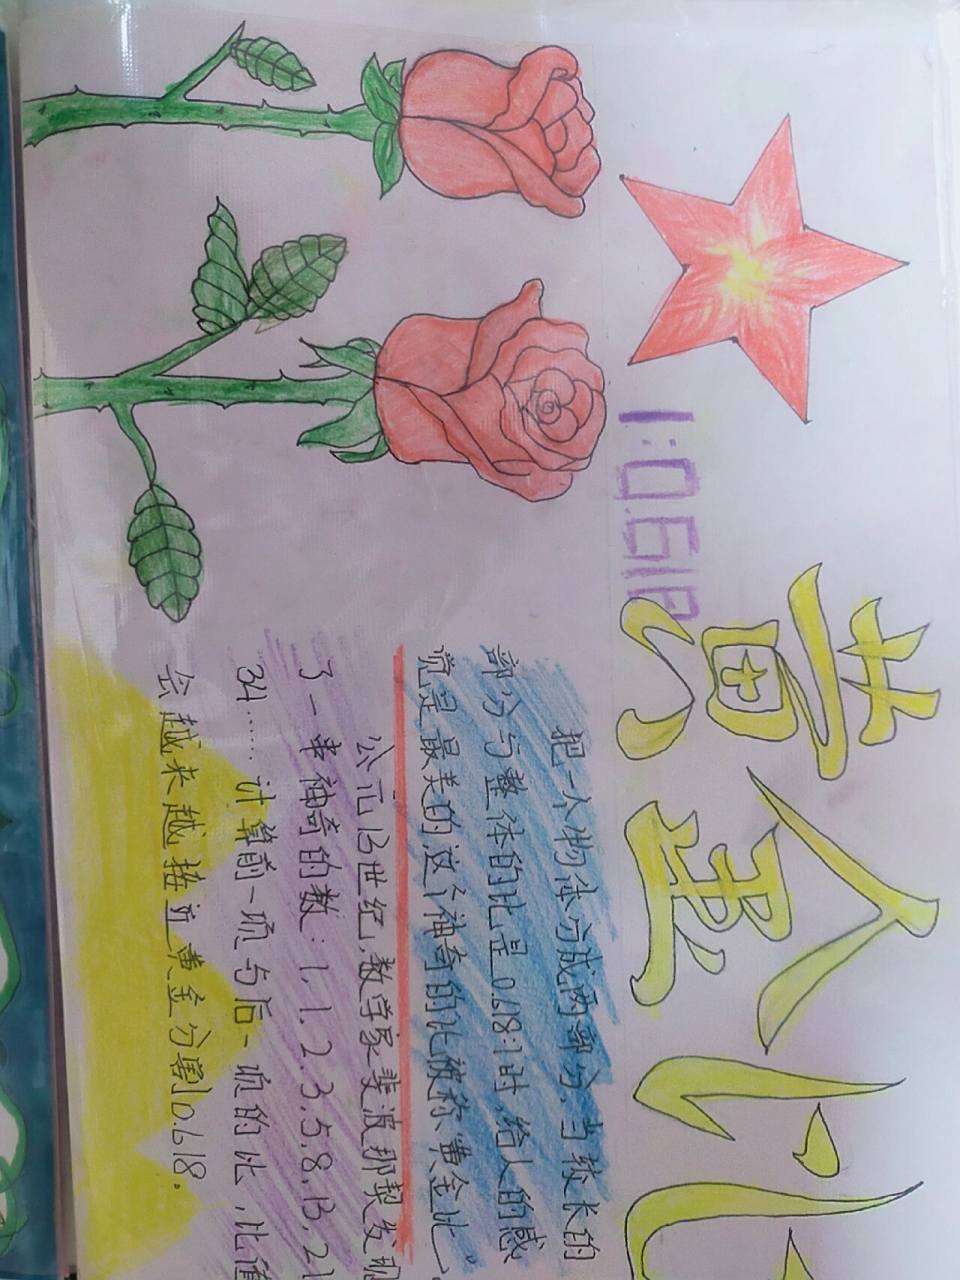 黄金比
1:0.618
把一个物体分成两部分,当较长的
部分与整体的比是0.618:1时,给人的感
觉是最美的,这个神奇的比被称"黄金比"。
公元13世纪,数学家斐波那契发现
了一串神奇的数:1,1,2,3,5,8,13,21
34……计算前一项与后一项的比,比值
会越来越接近黄金分割0.618.